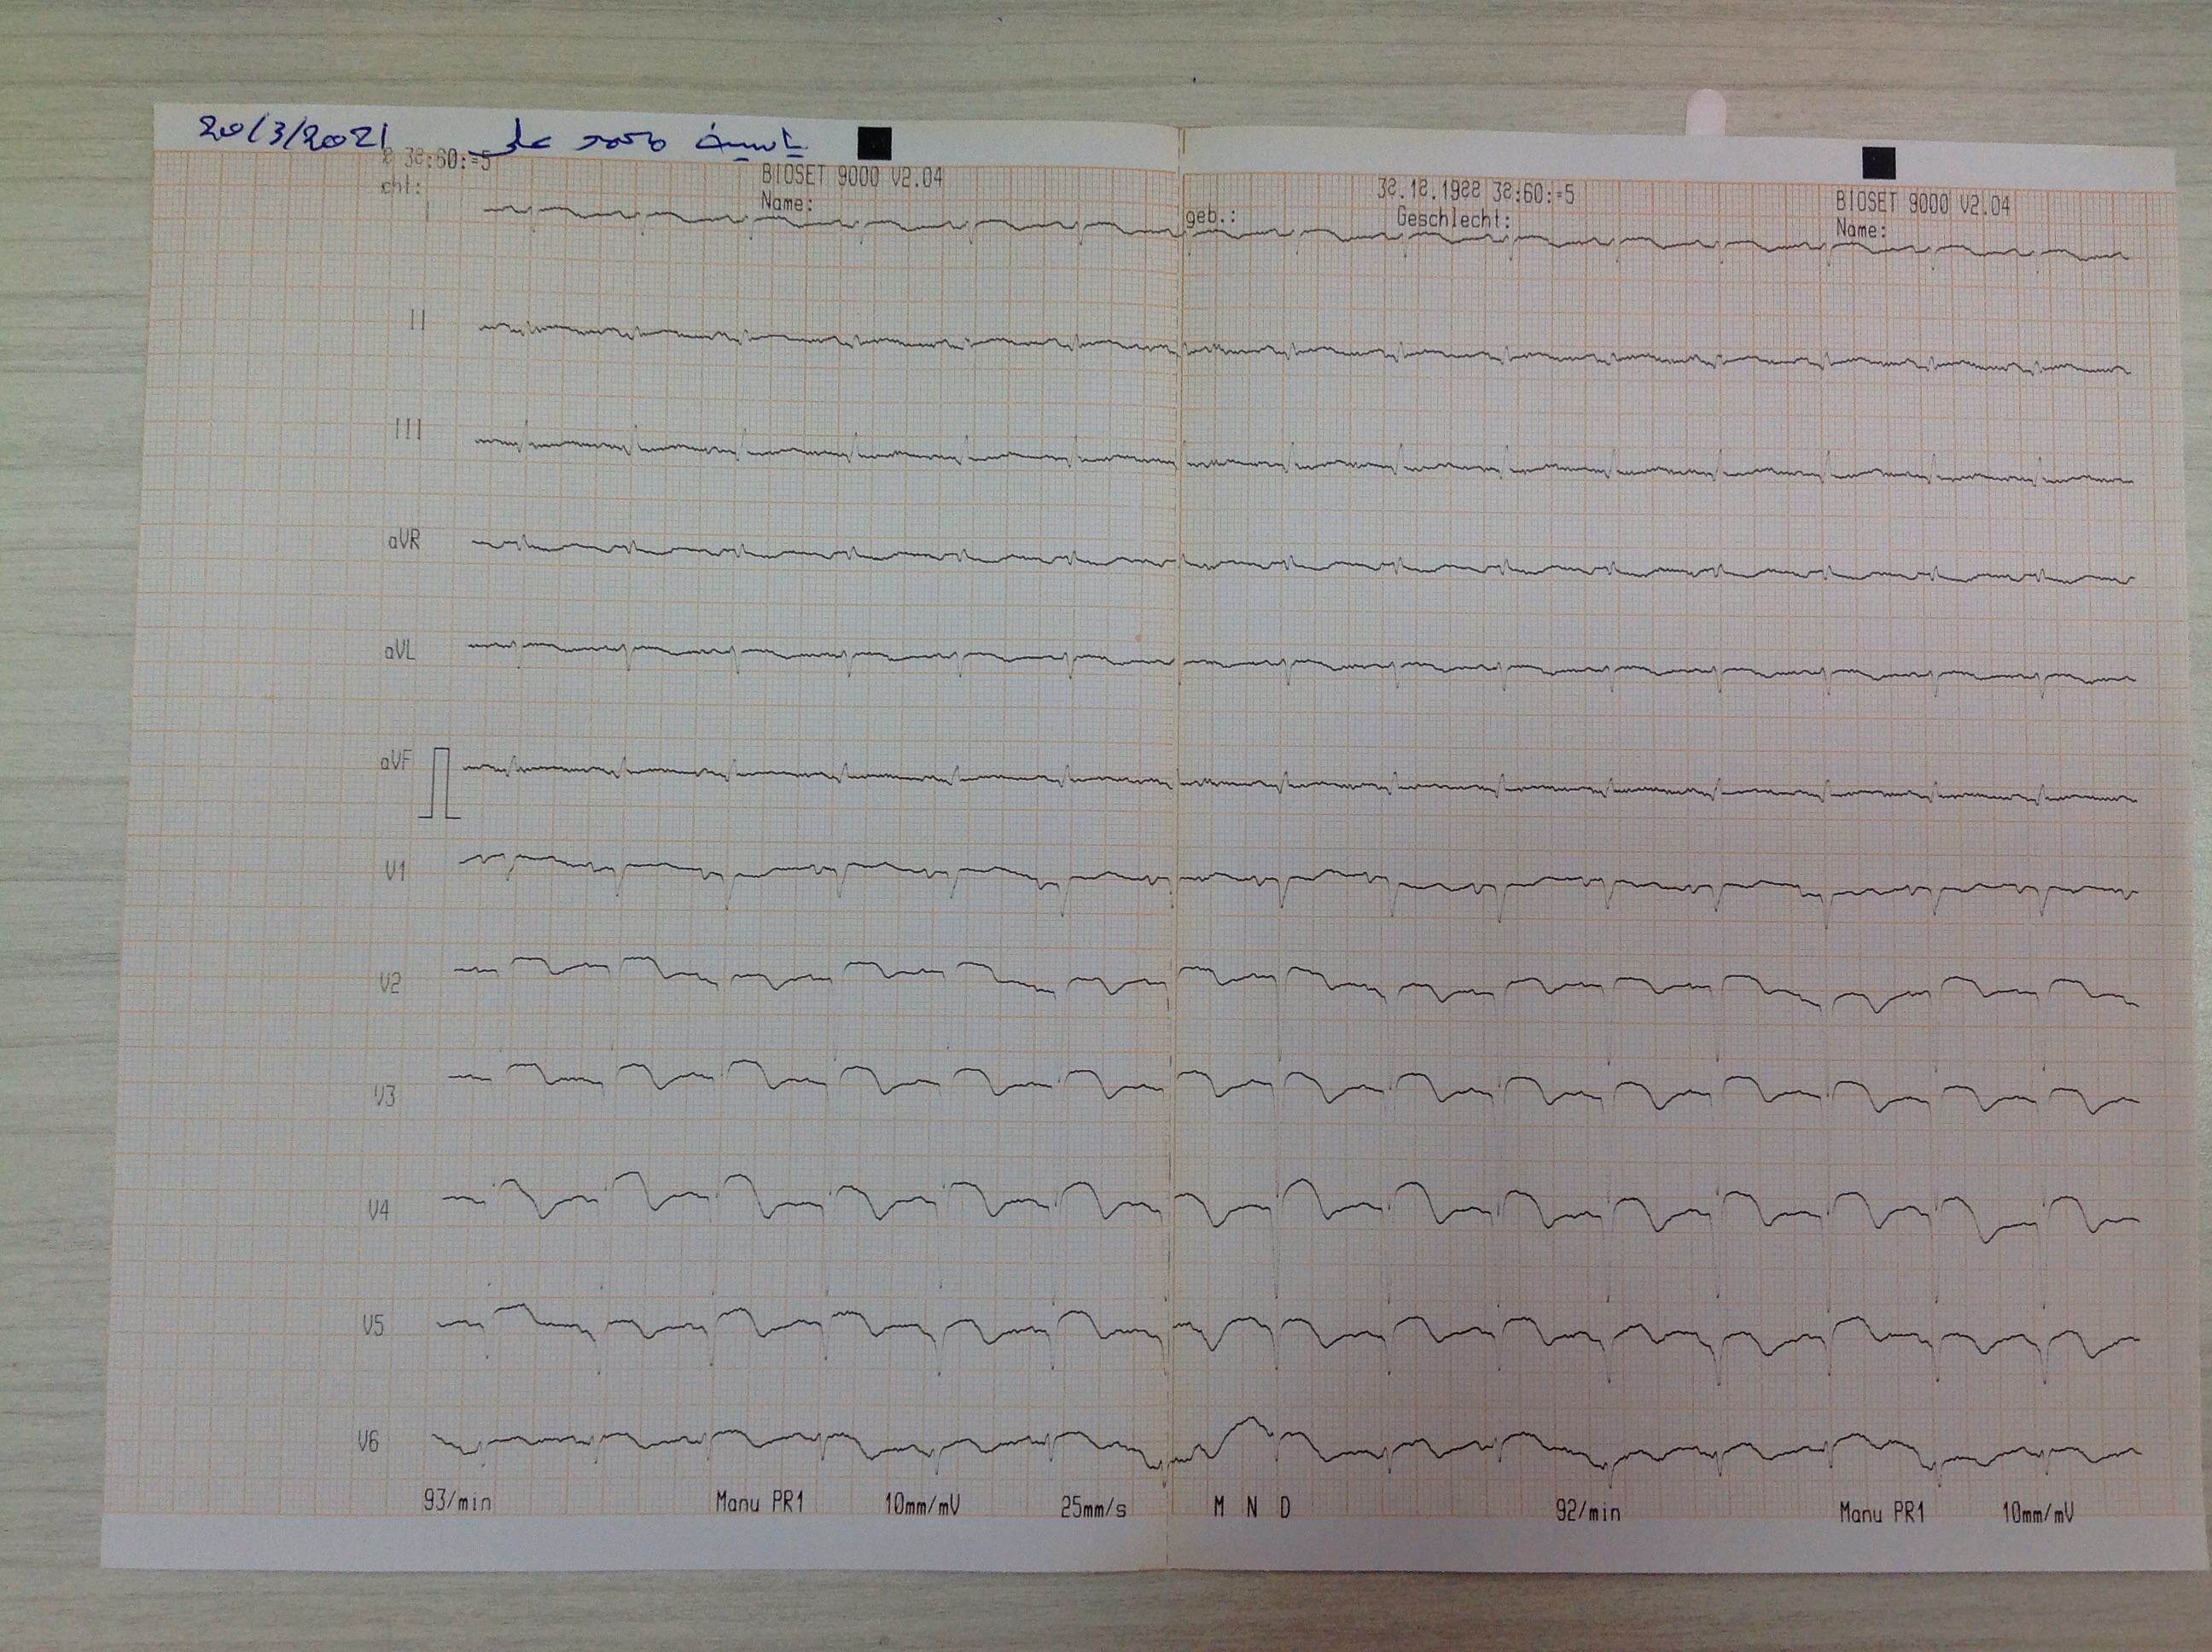 20/3/2021 ياسين محمد علي
8 38:60:=5
cht:
BIOSET 9000 V2.04
Name:
geb.:
38.18.1988 38:60:=5
Geschlecht:
BIOSET 9000 V2.04
Name:
I
II
III
aVR
aVL
aVF
V1
V2
V3
V4
V5
V6
93/min Manu PR1 10mm/mV 25mm/s M N D 92/min Manu PR1 10mm/mV